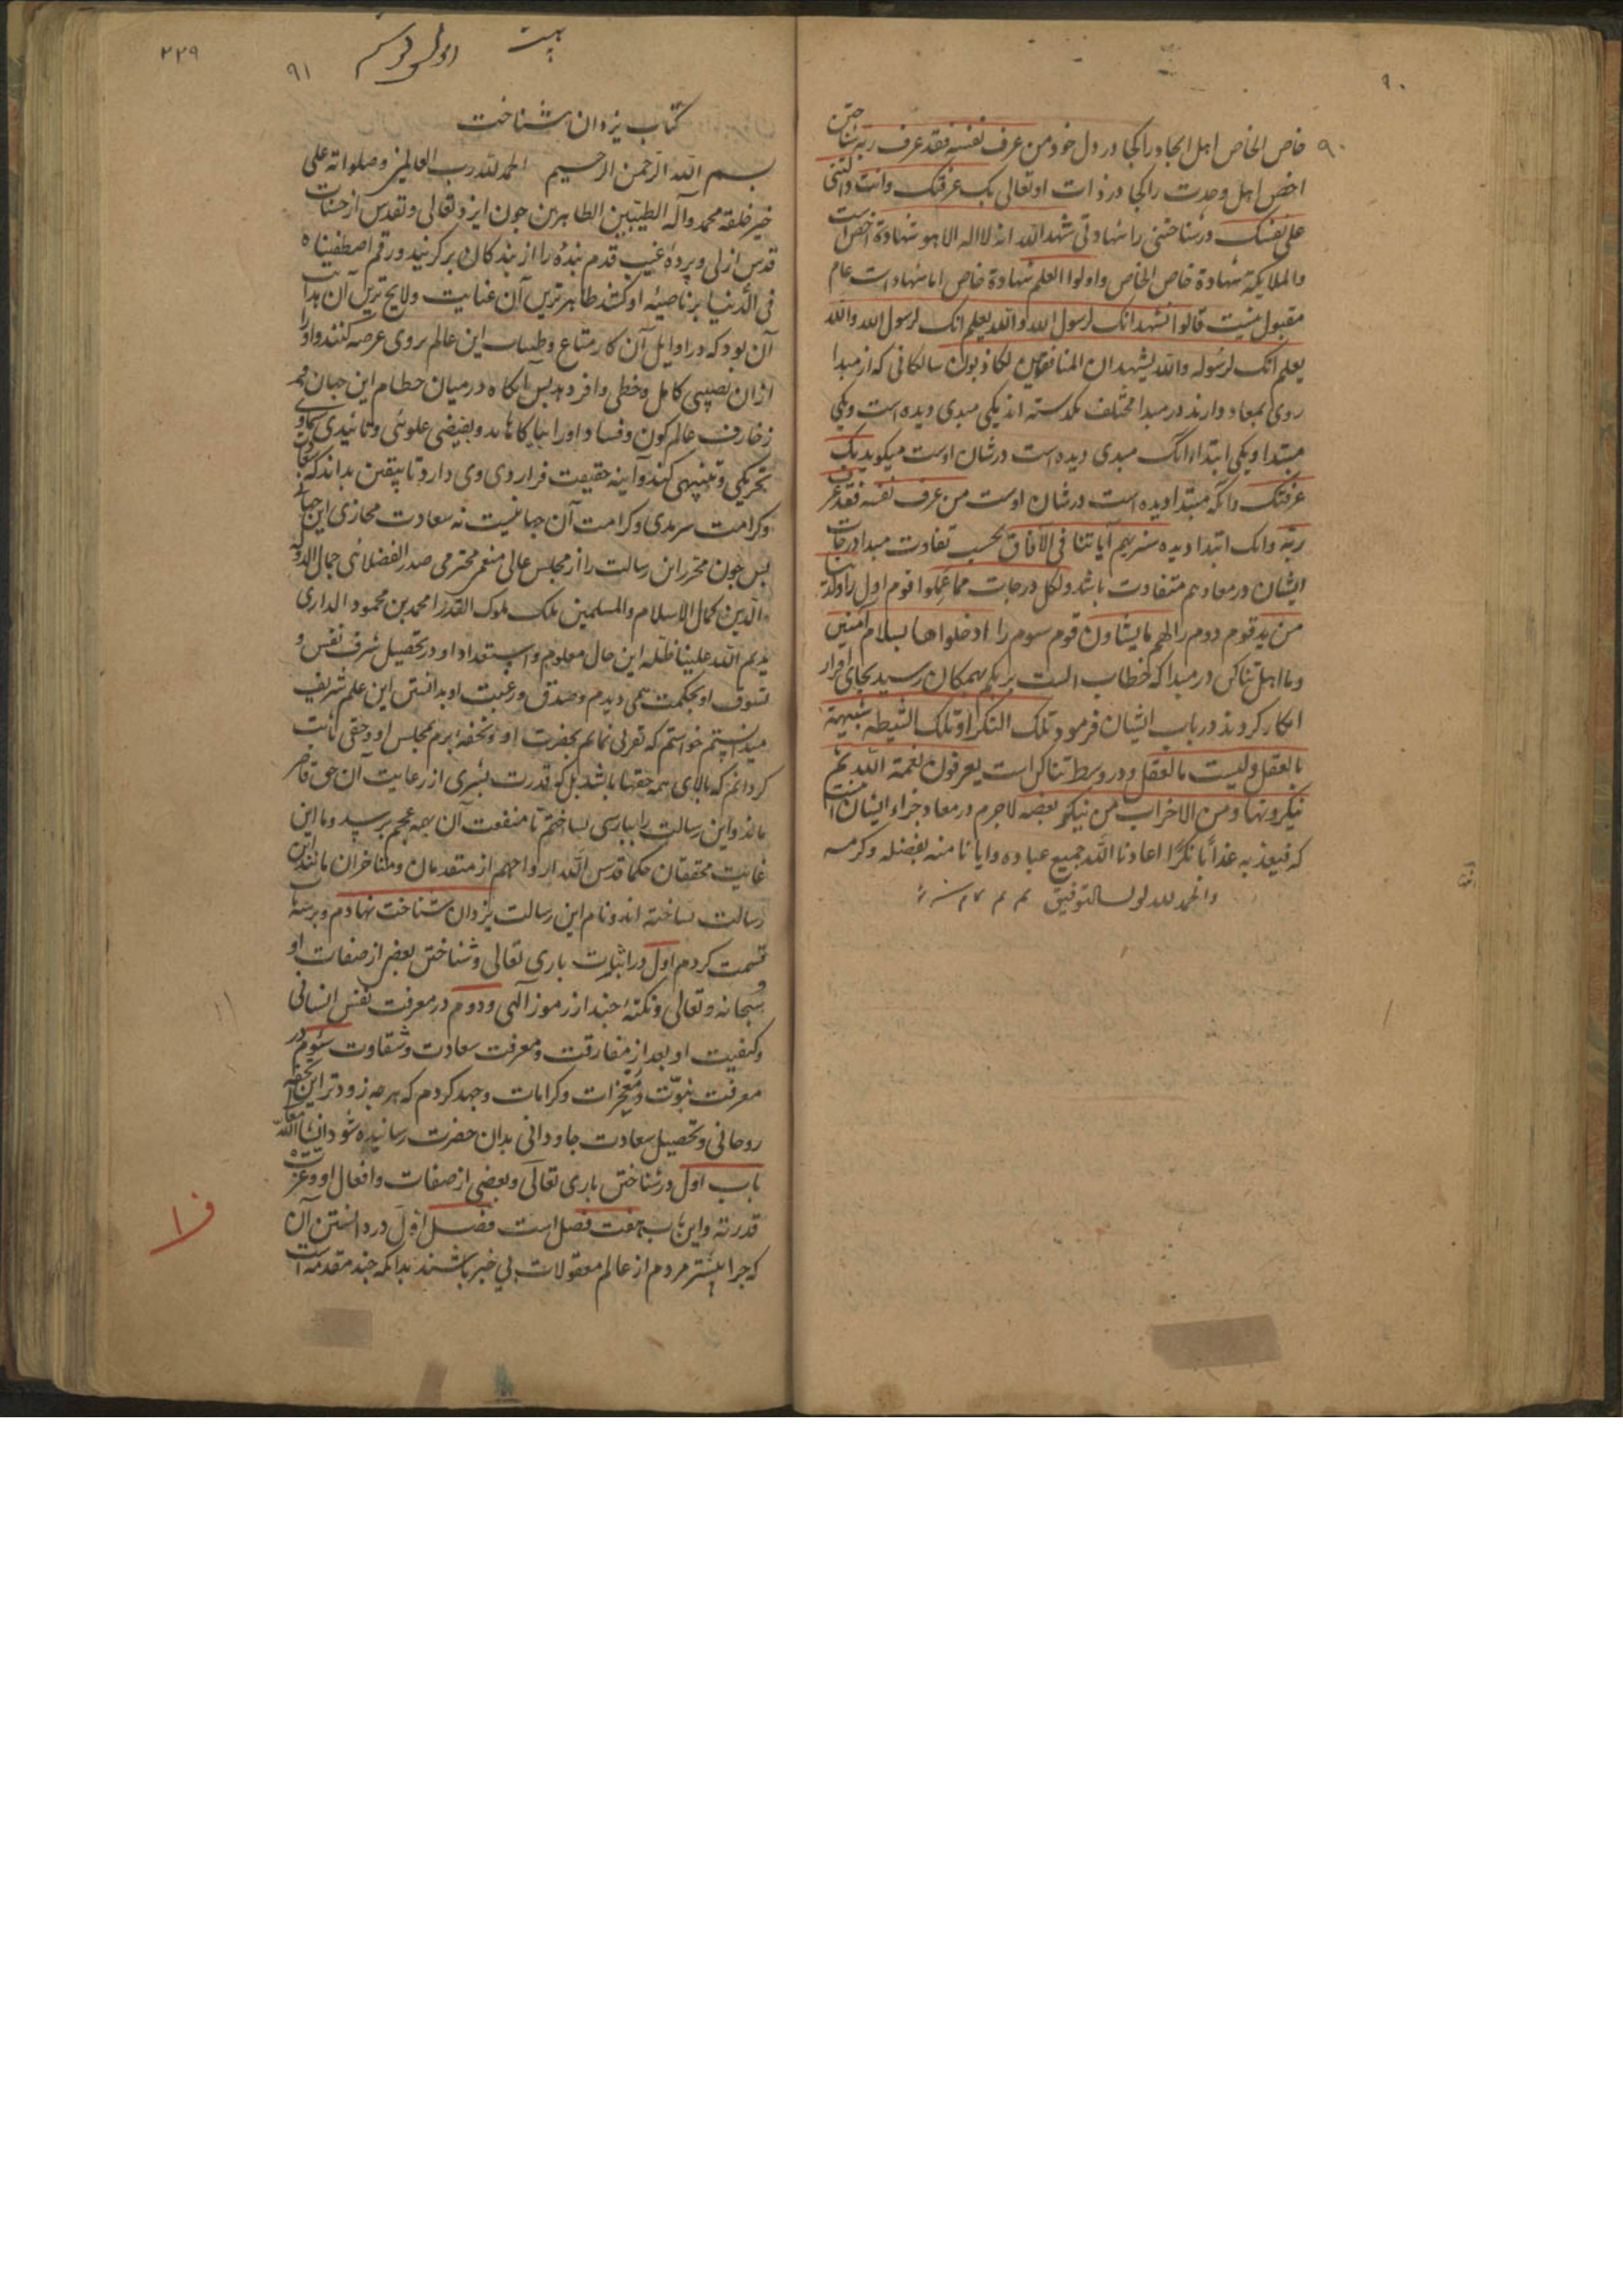 ۹۰
۹۰ خاص الخاص اهل ایجاد را کجا در دل خود من عرف نفسه فقد عرف ربه شناختن
اخص اهل وحدت را کجا در ذات او تعالی بک عرفتک وانت دللتنی
علی نفسک در شناختنی را شهادتی شهد الله انه لا اله الا هو شهادة اخص است
والملایکة شهادة خاص الخاص واولوا العلم شهادة خاص اما شهادات عام
مقبول نیست قالوا نشهد انک لرسول الله والله یعلم انک لرسول الله والله
یعلم انک لرسوله والله یشهد ان المنافقین لکاذبون سالکانی که از مبدا
روی بمعاد دارند در مبدا مختلف یکدسته اند یکی مبدی دیده است ویکی
مبتدا ویکی ابتدا انک مبدی دیده است در شان اوست میکوید بک
عرفتک وانکه مبتدا دیده است در شان اوست من عرف نفسه فقد عرف
ربه وانک ابتدا دیده سنریهم آیاتنا فی الآفاق بحسب تفاوت مبدا درجات
ایشان در معاد هم متفاوت باشد ولکل درجات مما عملوا قوم اول را ولدینا
مزید قوم دوم را لهم ما یشاون قوم سوم را ادخلوها بسلام آمنین
وما اهل تناکر در مبدا که خطاب الست بربکم بهمکان رسید بجای اقرار
انکار کردند در باب ایشان فرمود تلک النکرا وتلک الشیطه شبیهة
بالعقل ولیست بالعقل ودر وسط تناکر است یعرفون نعمة الله ثم
ینکرونها ومن الاحزاب من ینکر بعضه لاجرم در معاد جزاء ایشان است
که فیعذبه عذابا نکرا اعاذنا الله جمیع عباده وایانا منه بفضله وکرمه
والحمد لله لولی التوفیق
۲۲۹
۹۱
کتاب یزدان شناخت
بسم الله الرحمن الرحیم الحمد لله رب العالمین وصلواته علی
خیر خلقه محمد وآله الطیبین الطاهرین جون ایزد تعالی وتقدس از جنات
قدس ازلی وپرده غیب قدم بنده را از بندکان برکزیند ورقم اصطفیناه
فی الدنیا بر ناصیه او کشند ظاهرترین آن عنایت ولایح ترین آن هدایت
آن بود که در اوایل آن کار متاع وطیبات این عالم بروی عرضه کنند واورا
ازان نصیبی کامل وحظی وافر دهد بس آنکاه در میان حطام این جهان
زخارف عالم کون وفساد اورا بیاکاهاند وبفیضی علوی وتائیدی سماوی
تحریکی وتنبیهی کند وآینه حقیقت فرا روی وی دارد تا بیقین بداند که
وکرامت سرمدی وکرامت آن جهانیست نه سعادت مجازی این جهانی
بس جون محرر این رسالت را از مجلس عالی منعم محترمی صدر الفضلائی جمال الدوله
والدین کمال الاسلام والمسلمین ملک ملوک القدرا محمد بن محمود الداری
یدیم الله علینا ظله این حال معلوم واستعداد او در تحصیل شرف نفس و
تشوق او بحکمت همی دیدم وصدق ورغبت او بدانستن این علم شریف
میدانستم خواستم که تقربی نمایم بحضرت او وتحفه برم بمجلس او وحقی ثابت
کردانم که بالای همه حقها باشد بل که قدرت بشری از رعایت آن حق قاصر
ماند واین رسالت را ببارسی بساختم تا منفعت آن بهمه عجم برسد وما این
غایت محققان حکما قدس الله ارواحهم از متقدمان ومتاخران مانند این
رسالت نساخته اند ونام این رسالت یزدان شناخت نهادم وبر سه باب
قسمت کردم اول در اثبات باری تعالی وشناختن بعضی از صفات او
سبحانه وتعالی ونکته چند از رموز آلهی ودوم در معرفت نفس انسانی
وکیفیت او بعد از مفارقت ومعرفت سعادت وشقاوت سوم در
معرفت نبوت ومعجزات وکرامات وجهد کردم که هرجه زودتر این تحفه
روحانی وتحصیل سعادت جاودانی بدان حضرت رسانیده شود انشاالله تعالی
باب اول در شناختن باری تعالی وبعضی از صفات وافعال او وعزت
قدرته واین باب هفت فصل است فصل اول در دانستن آن
که جرا بیشتر مردم از عالم معقولات بی خبر باشند بدانکه جند مقدمه است